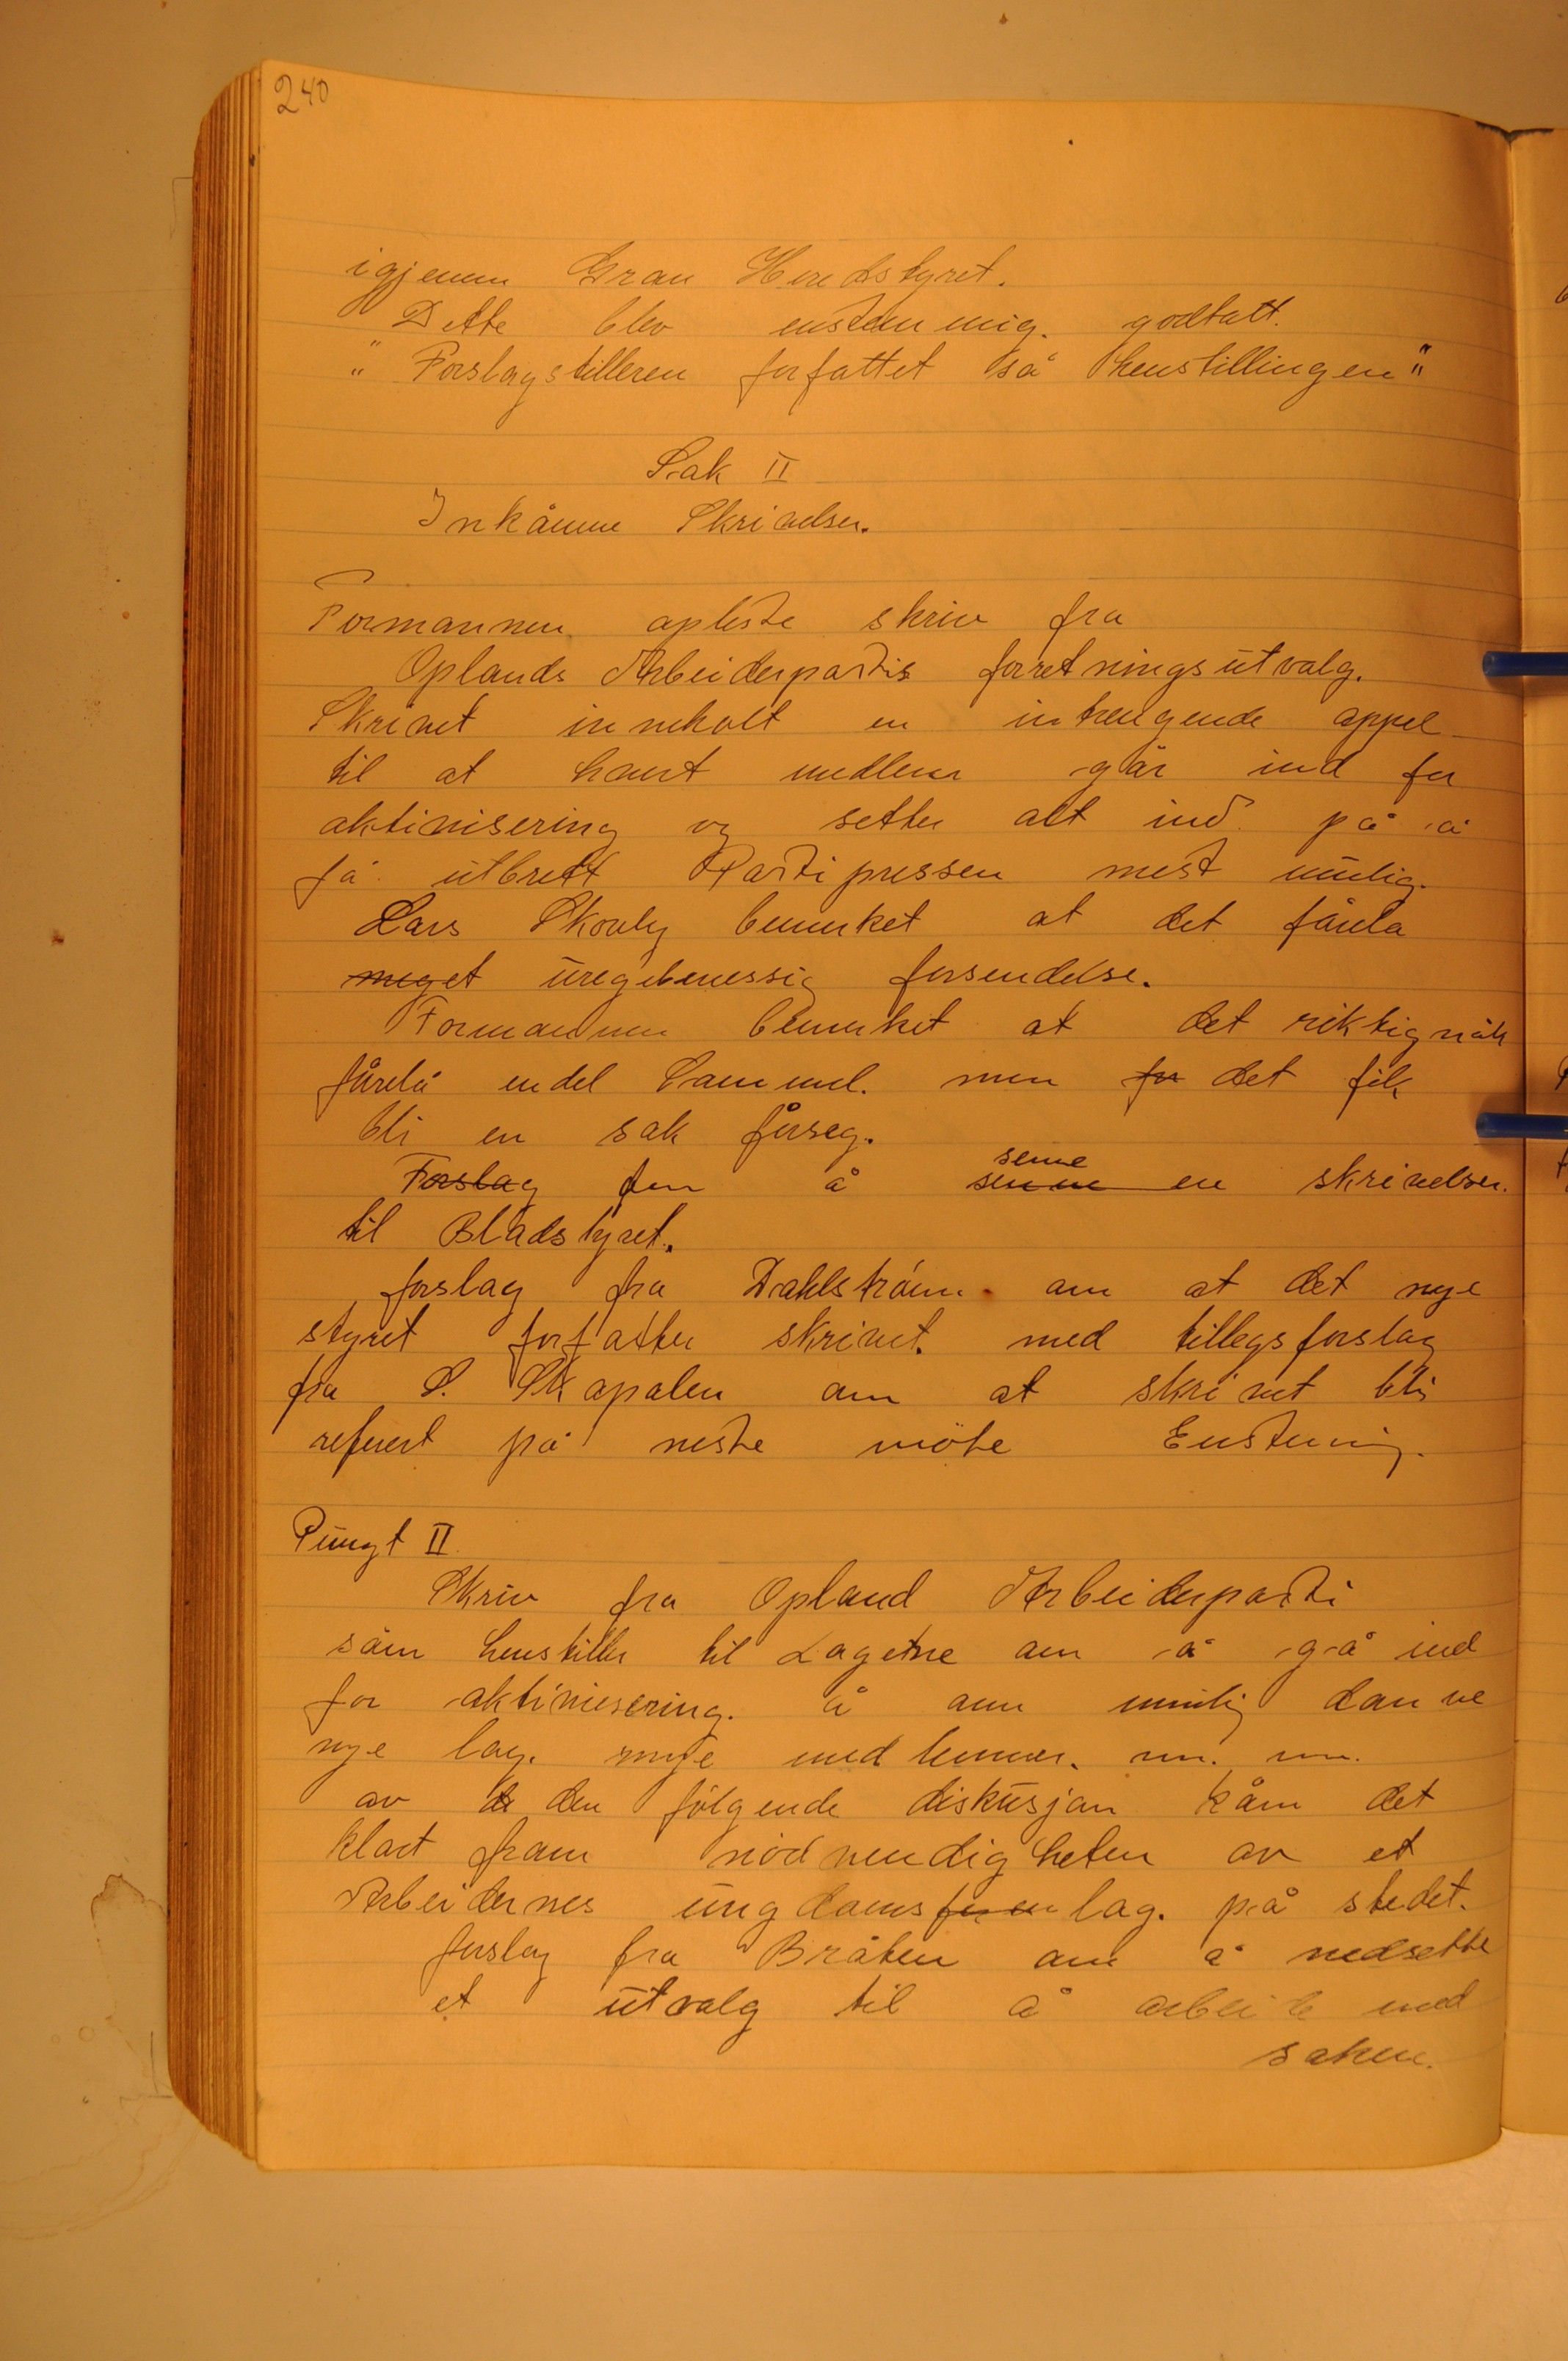 240
igjenem Gran Heredstyret.
Dette blev enstemmig. godtatt.
" Forslagstilleren forfattet så henstillingen"
Sak II
Inkåmne Skrivelser.
Formannen opleste skriv fra
Oplands Arbeiderpartis forretningsutvalg.
Skrivet inneholt en intrengende appel
til at hvert medlem går ind for
aktivisering og setter alt ind på å
få utbrett Partipressen mest mulig.
Lars Skovly bemerket at det fårela
meget uregelmessig forsendelse.
Formannen bemerket at det riktignåk
fårelå endel Sammel. men for det fik
bli en sak førseg.
Forslag fem å senne
senne en skrivelser.
til Bladstyret.
forslag fra Dahlstrøm om at det nye
styret forfatter skrivet. med tillegsforslag
fra S. Skapalen om at skrivet blir
referert på neste møte Enstemig.
Pungt II
Skriv fra Opland Arbeiderparti
såm henstiller til Lagene om å gå ind
for aktiviesering. å om mulig danne
nye lag. mye medlemmer. mm. mm.
av de den følgende diskusjon kåm det
klart fram nødvendigheten av et
Arbeidernes ungdomsforen lag. på stedet.
forslag fra Bråten om å nedsette
et utvalg til å arbeide med
saken.